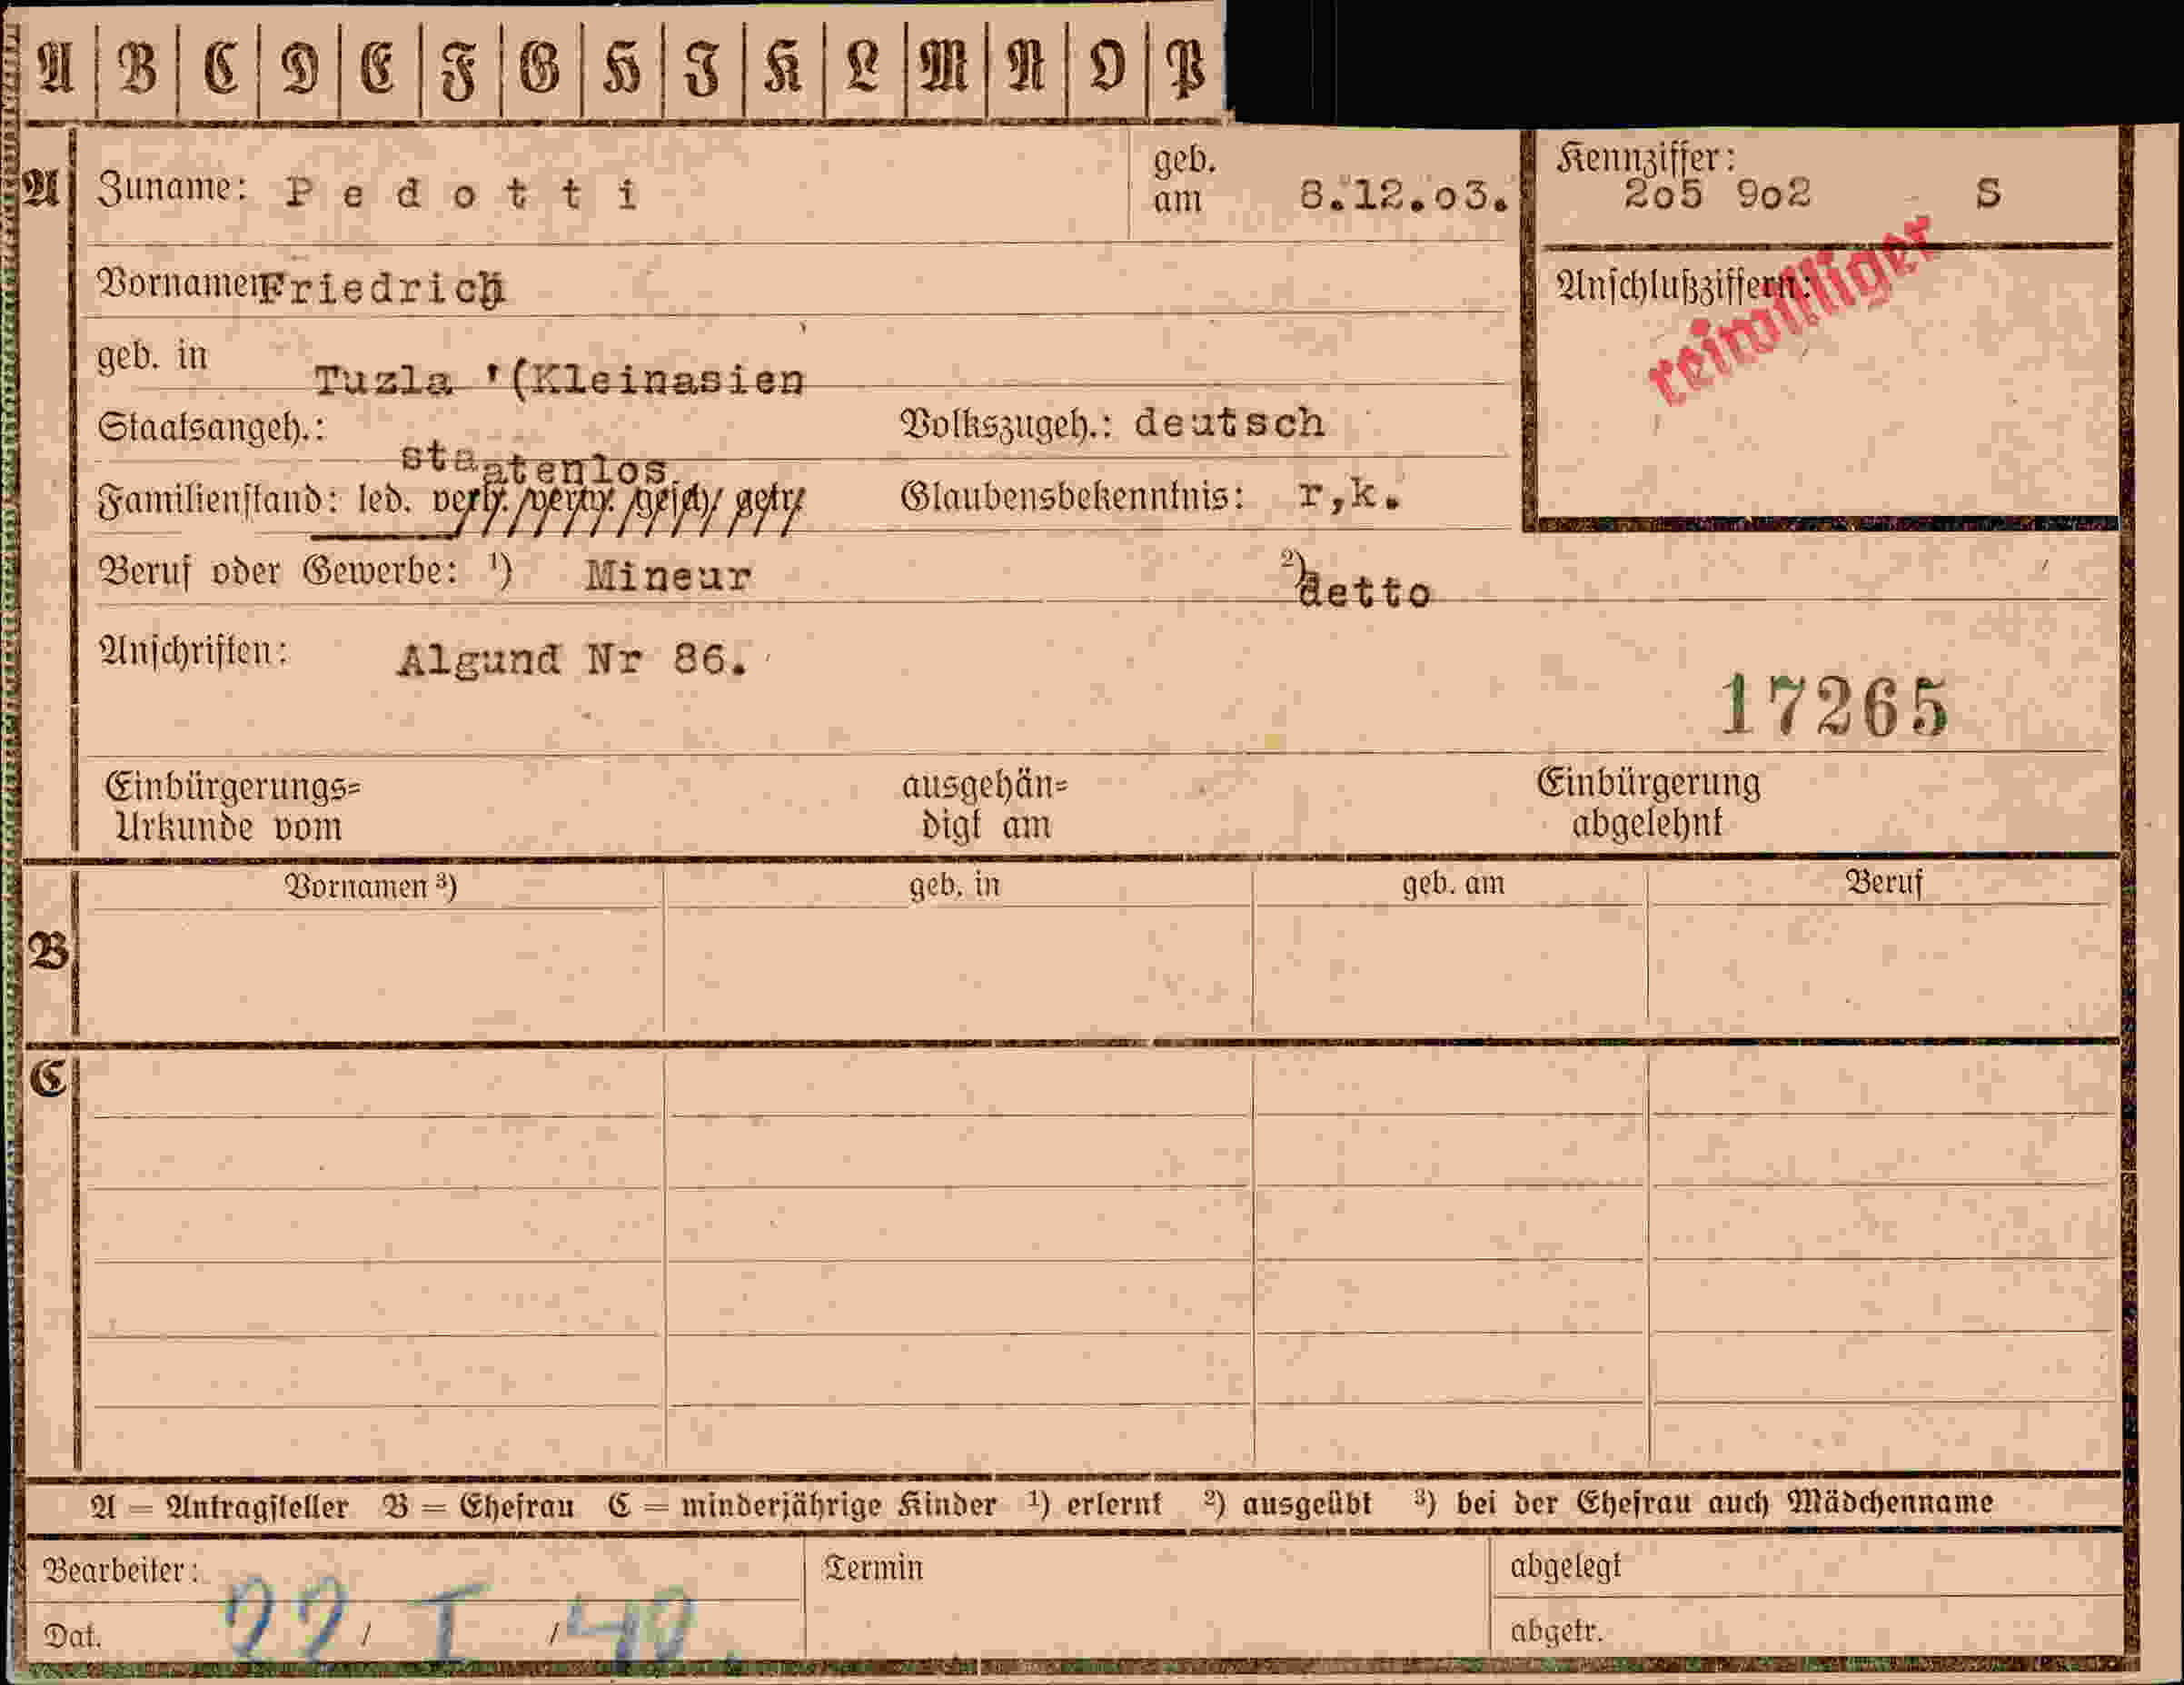 A B C D E F G H I K L M N O P
A Zuname: Pedotti geb. am 8.12.o3. Kennziffer: 2o5 9o2 S
Vornamen Friedrich Anschlußziffern: reiwilliger
geb. in Tuzla '(Kleinasien
Staatsangeh.: staatenlos Volkszugeh.: deutsch
Familienstand: led. verh. verw. gesch. getr. Glaubensbekenntnis: r,k.
Beruf oder Gewerbe: ¹) Mineur ²) detto
Anschriften: Algund Nr 86.
17265
Einbürgerungs= ausgehän= Einbürgerung
Urkunde vom digt am abgelehnt
Vornamen ³) geb. in geb. am Beruf
B
C
A = Antragsteller B = Ehefrau C = minderjährige Kinder ¹) erlernt ²) ausgeübt ³) bei der Ehefrau auch Mädchenname
Bearbeiter: Termin abgelegt
Dat. 22 / I / 40. abgetr.